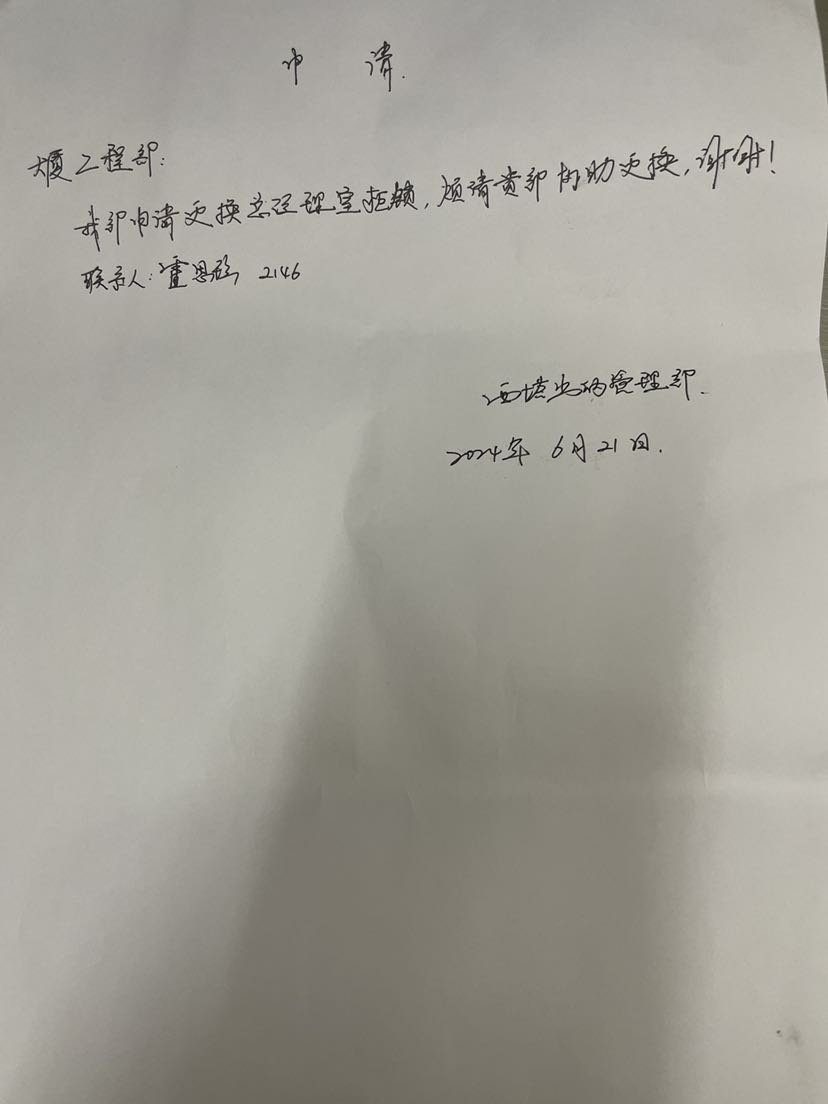 申 请.
大厦工程部:
我部申请更换总经理室柜锁,烦请贵部协助更换,谢谢!
联系人: 霍思 2146
西塔出纳管理部.
2024年 6月21日.